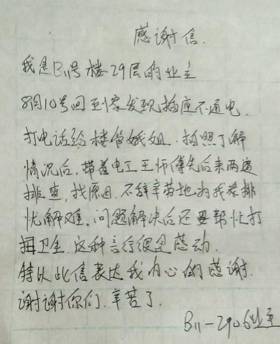 感谢信.
我是B11号楼29层的业主
8月10号回到家发现插座不通电.
打电话给楼管娥姐.拍照了解
情况后,带着电工王师傅先后来两遍
排查,找原因.不辞辛劳地为我家排
忧解难.问题解决后还帮忙打
扫卫生.这种言行很是感动.
特以此信表达我内心的感谢.
谢谢你们.辛苦了.
B11-2906业主